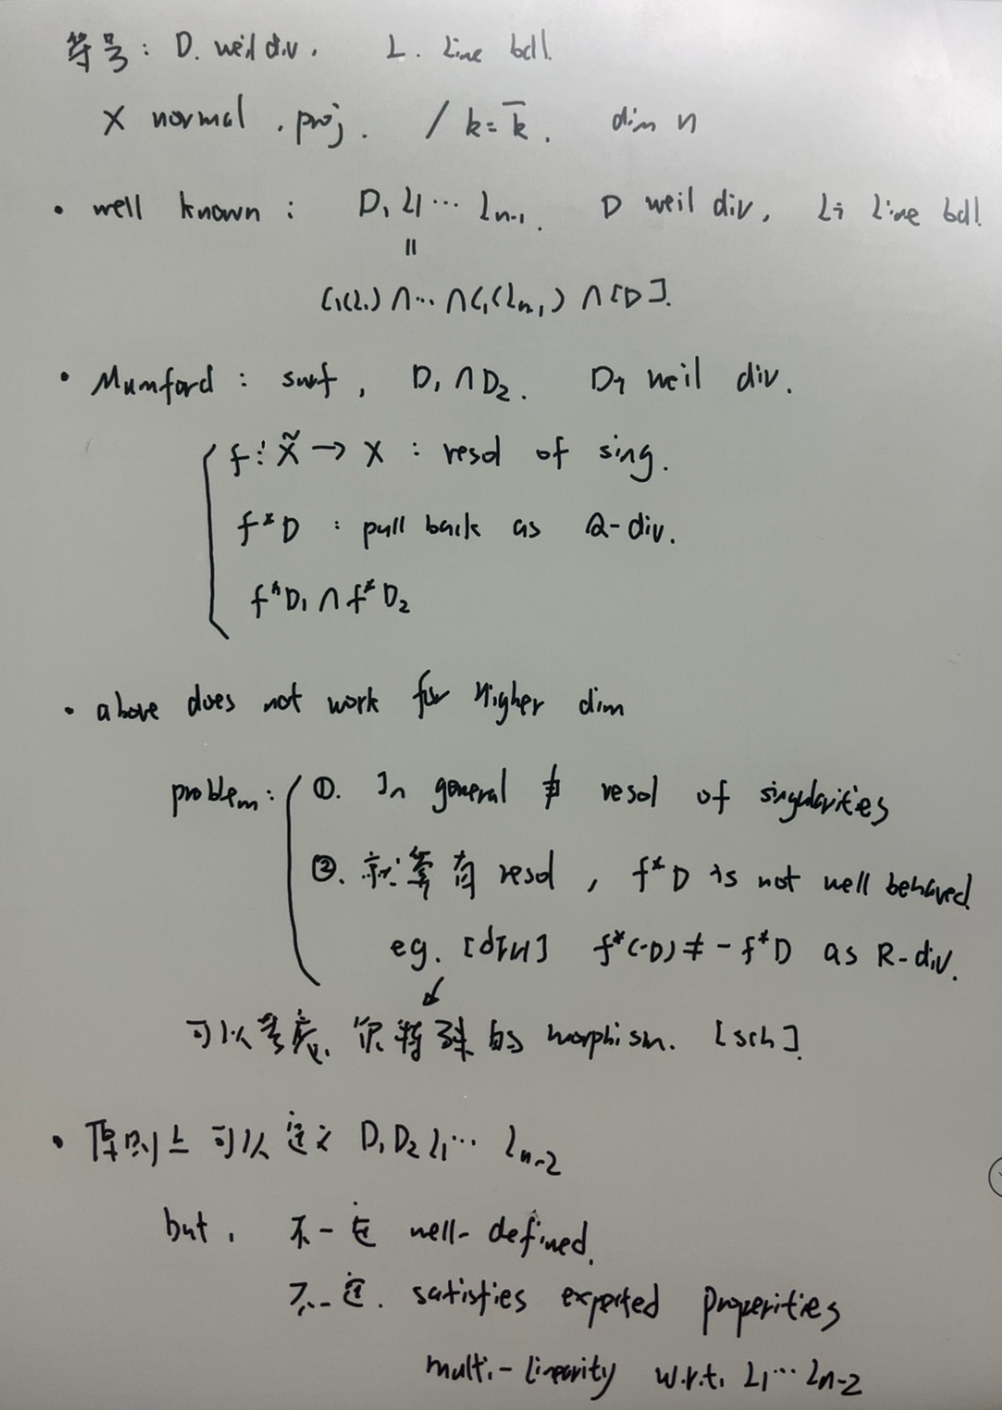 符号: D. weil div. L. Line bdl.
X normal. proj. / k = k̄. dim n
• well known: D, L1 ⋯ Ln-1. D weil div, Li line bdl.
=
C1(L1) ∩ ⋯ ∩ C1(Ln-1) ∩ [D].
• Mumford: surf, D1 ∩ D2. D? weil div.
f: X̃ → X: resol of sing.
f*D: pull back as Q-div.
f*D1 ∩ f*D2
• above does not work for Higher dim
problem: ①. In general ∄ resol of singularities
②. 就算有 resol, f*D is not well behaved.
eg. [dFH] f*(-D) ≠ -f*D as R-div.
↓
可以考虑 很特殊的 morphism. [Sch]
• 原则上可以定义 D1 D2 L1 ⋯ Ln-2
but, 不一定 well-defined.
不一定. satisfies expected Properities
multi-linearity w.r.t. L1 ⋯ Ln-2